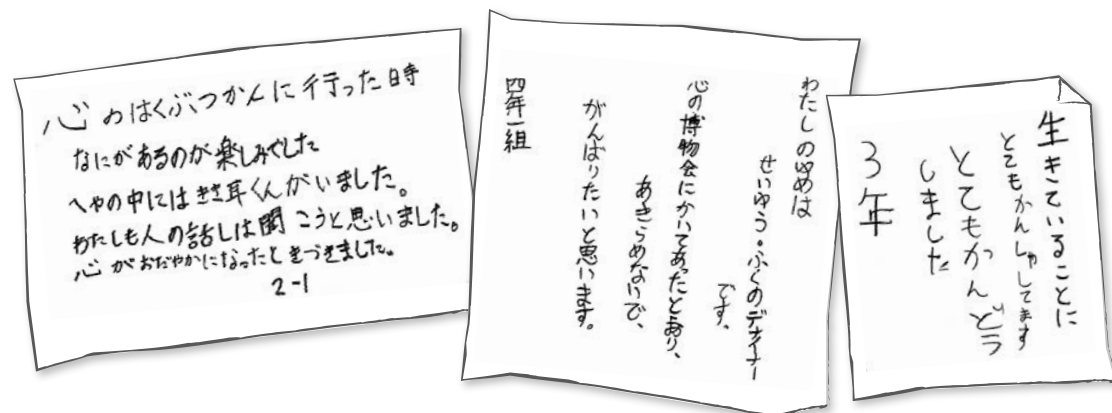 心のはくぶつかんに行った時
なにがあるのが楽しみでした
へやの中にはきき耳くんがいました。
わたしも人の話しは聞こうと思いました。
心がおだやかになったときづきました。
2-1
わたしのゆめは
せいゆう。ふくのデザイナー
です。
心の博物会にかいてあったとおり、
あきらめないで、
がんばりたいと思います。
四年一組
生きていることに
とてもかんしゃしてます
とてもかんどう
しました
3年